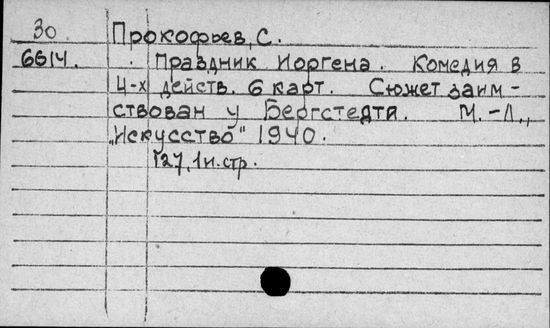 30 Прокофьев, С.
6614. Праздник Йоргена. Комедия в
4-х действ. 6 карт. Сюжет заим-
ствован у Бергстедта. М.-Л.,
"Искусство" 1940.
127, 1 н. стр.